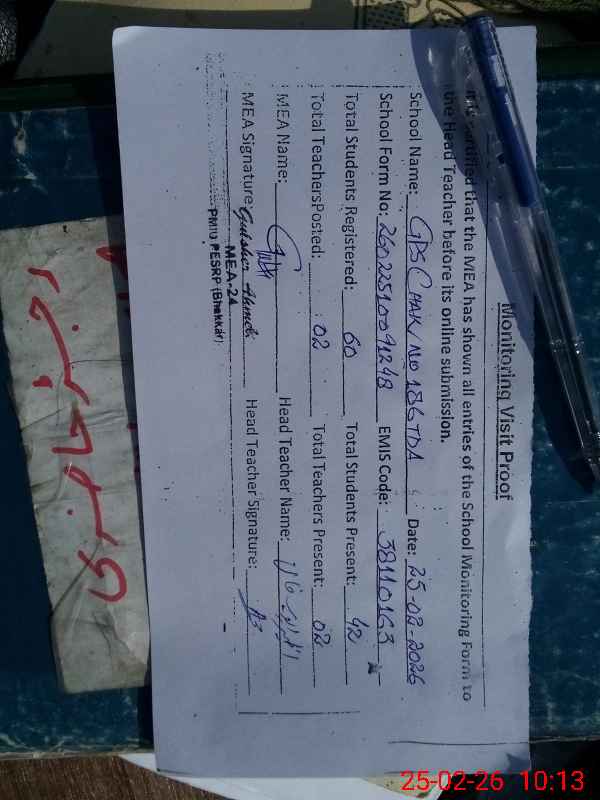 Monitoring Visit Proof
It is certified that the MEA has shown all entries of the School Monitoring Form to
the Head Teacher before its online submission.
School Name: GPS CHAK NO 186 TDA Date: 25-02-2026
School Form No: 26022510091248 EMIS Code: 38110163
Total Students Registered: 60 Total Students Present: 42
Total TeachersPosted: 02 Total Teachers Present: 02
MEA Name: Head Teacher Name:
MEA Signature: Gulsher Ahmed Head Teacher Signature:
MEA-24
PMIU PESRP (Bhakkar)
25-02-26 10:13